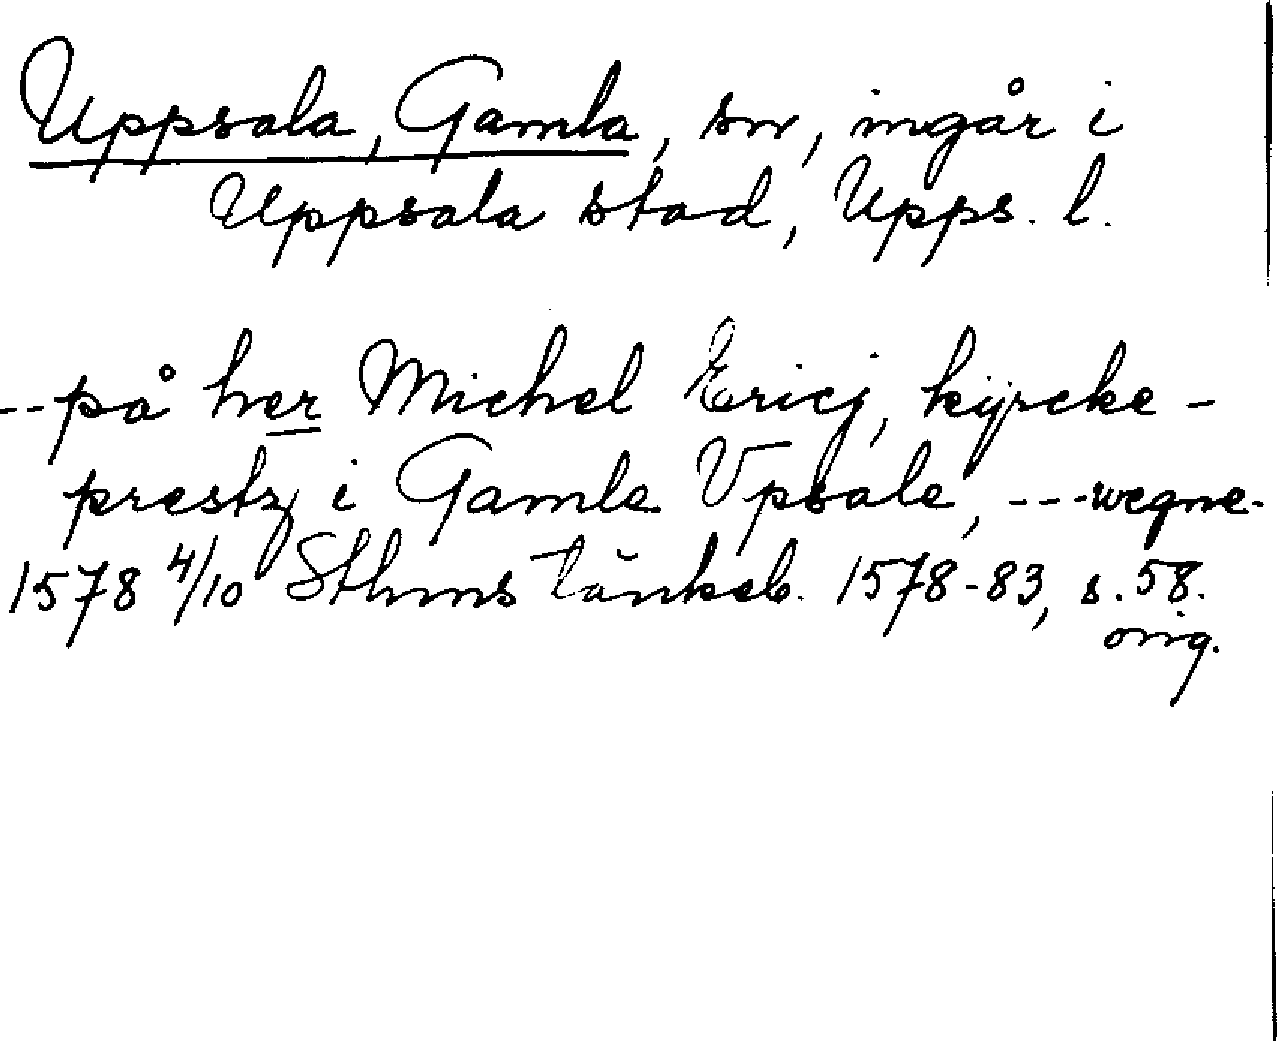 Uppsala, Gamla, sn, ingår i
Uppsala stad, Upps. l.
--på her Michel Ericj, kÿrcke-
prestz i Gamle Vpsale, ---wegne-
1578 4/10 Sthms tänkeb. 1578-83, s. 58.
orig.